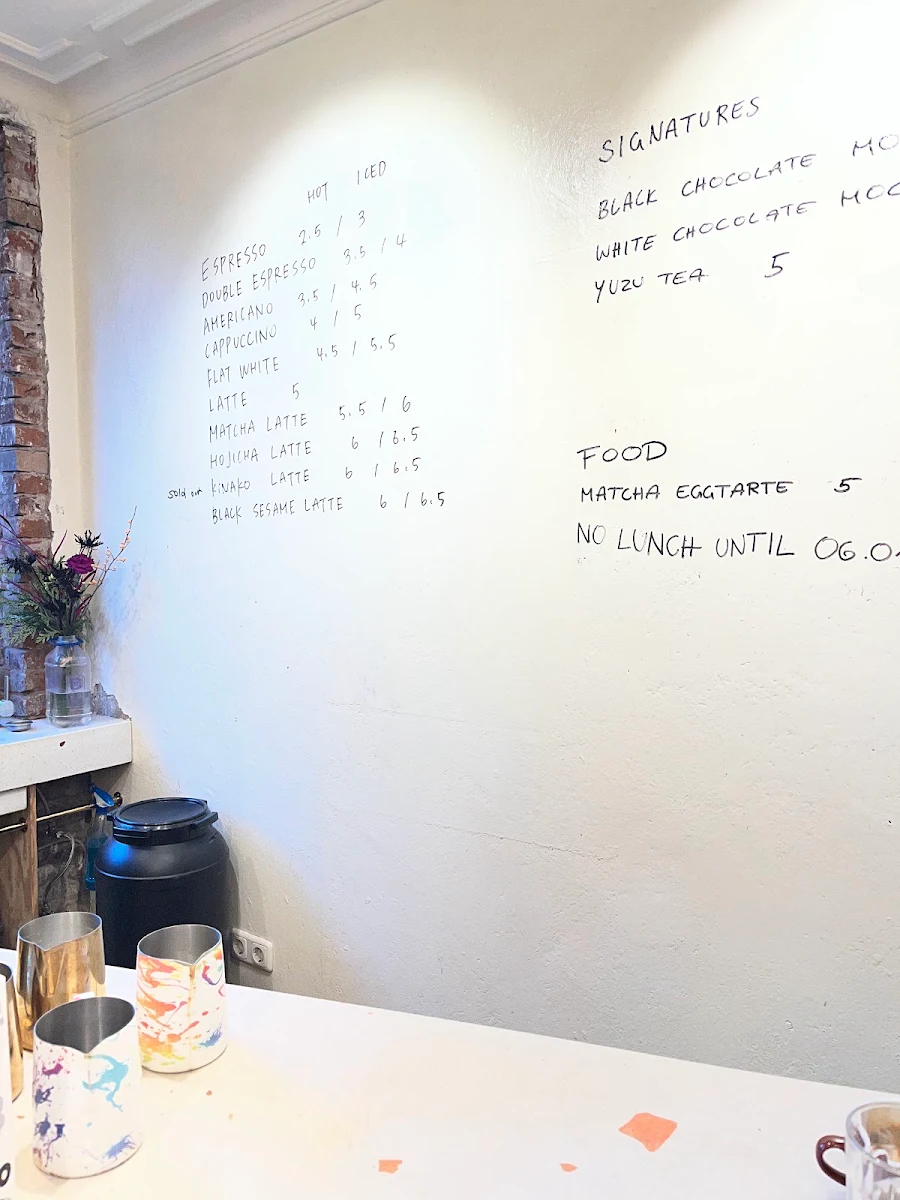 HOT ICED
ESPRESSO 2.5 / 3
DOUBLE ESPRESSO 3.5 / 4
AMERICANO 3.5 / 4.5
CAPPUCCINO 4 / 5
FLAT WHITE 4.5 / 5.5
LATTE 5
MATCHA LATTE 5.5 / 6
HOJICHA LATTE 6 / 6.5
sold out KINAKO LATTE 6 / 6.5
BLACK SESAME LATTE 6 / 6.5
SIGNATURES
BLACK CHOCOLATE MO
WHITE CHOCOLATE MOC
YUZU TEA 5
FOOD
MATCHA EGGTARTE 5
NO LUNCH UNTIL 06.0